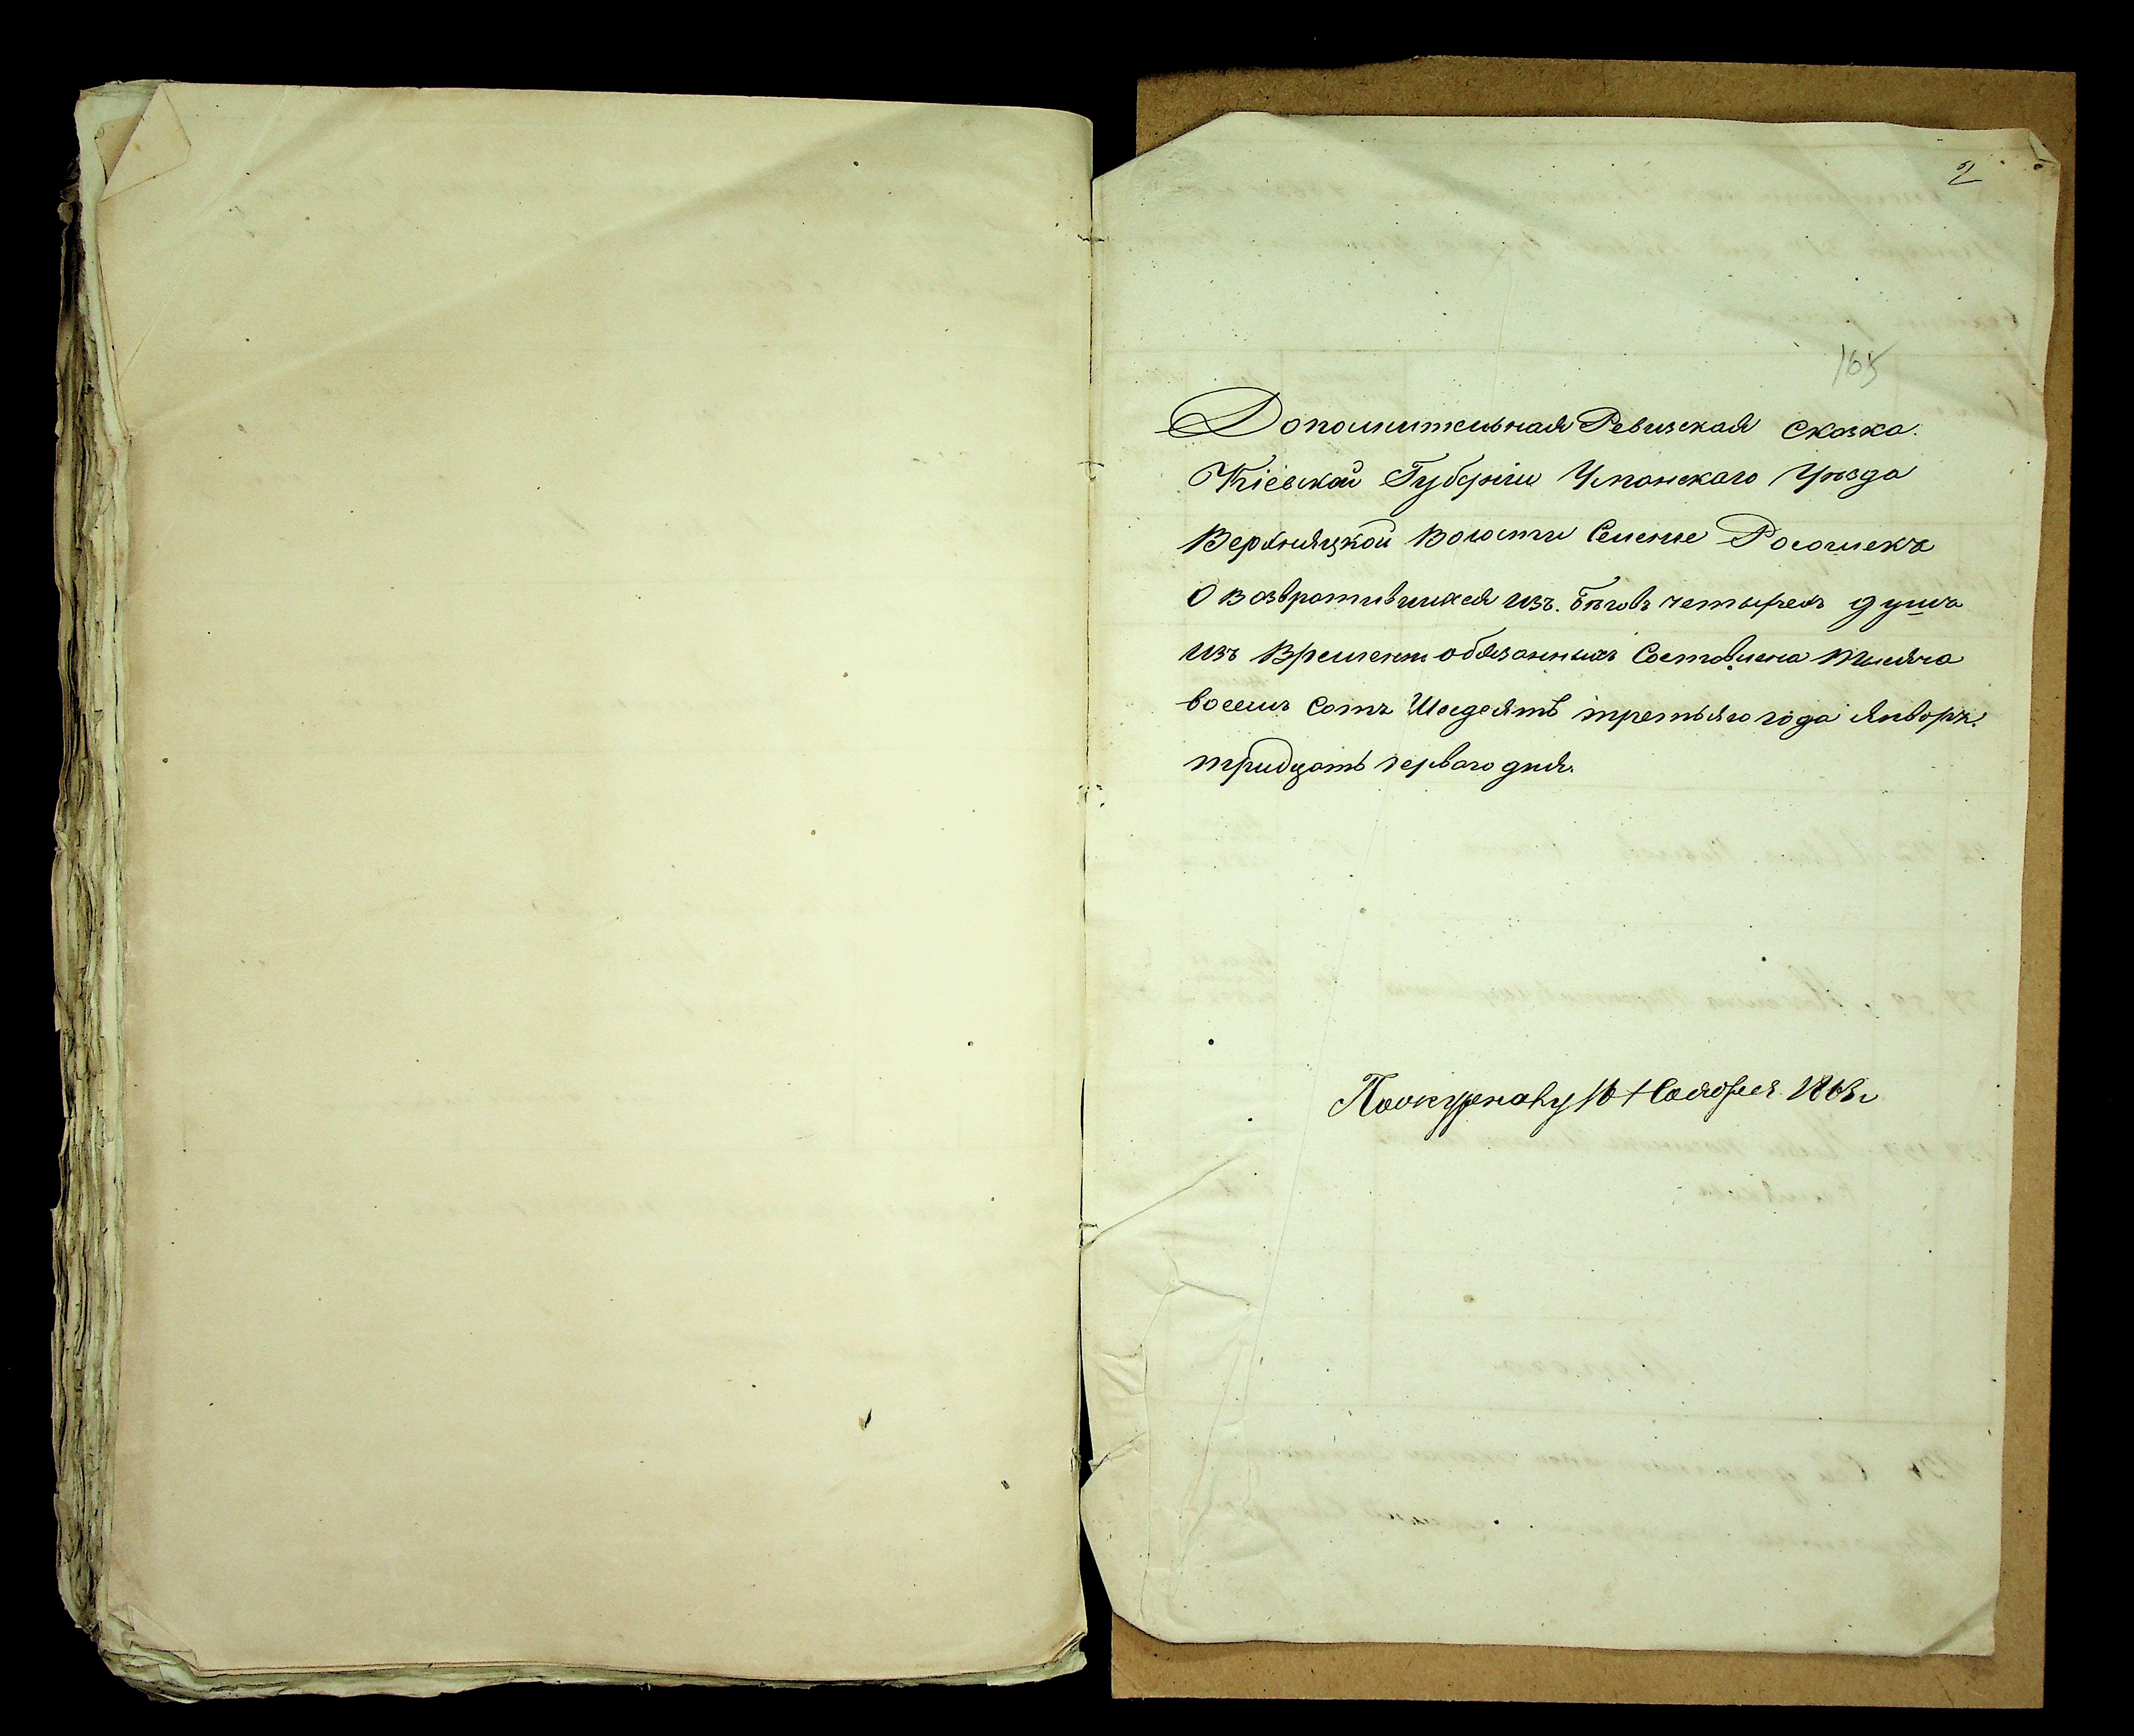 2
165
Дополнительная Ревизская Сказка.
Кіевской Губерніи Уманскаго Уѣзда
Верхняцкой Волости Селенье Рогошекъ
О возвратившихся изъ. бѣговъ четырехъ душъ
изъ Временнообязанныхъ Составлена тысяча
восемъ Сотъ Шесдесятъ третьяго года Января.
тридцать перваго дня.
По 10 Ноября 1863 г